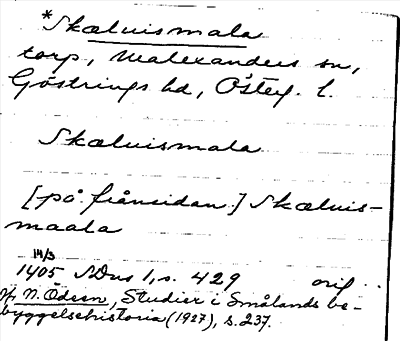 *Skæluismala
torp, Malexanders sn,
Göstrings hd, Österg. l.
Skæluismala
[på frånsidan:] Skæluis-
maala
14/3
1405 SDns 1, s. 429 orig.
Jfr N. Ödeen, Studier i Smålands be-
byggelsehistoria (1927), s. 237.